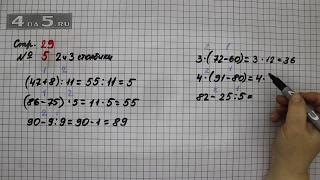 4 da 5.ru
Стр. 29
№ 5 2 и 3 столбики
1 2
(47+8) : 11 = 55 : 11 = 5
1 2
(86-75) · 5 = 11 · 5 = 55
2 1
90-9:9 = 90-1 = 89
2 1
3·(72-60) = 3·12=36
2 1
4·(91-80) = 4·
2 1
82-25:5=